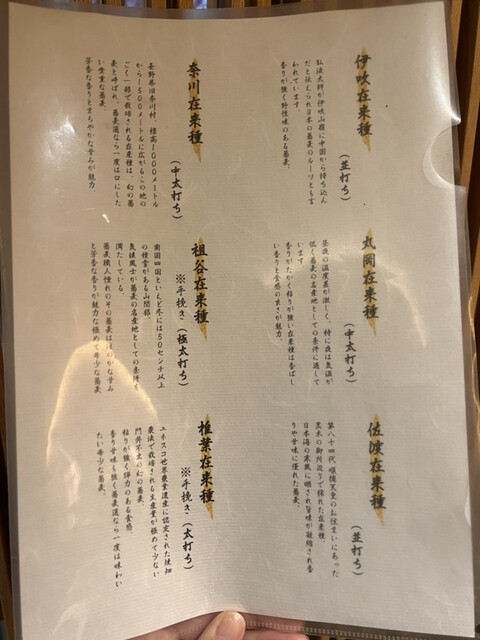 伊吹在来種
(並打ち)
弘法大師が伊吹山麓に中国から持ち込ん
だと伝えられ日本の蕎麦のルーツとも言
われています
香りが強く野性味のある蕎麦。
丸岡在来種
(中太打ち)
昼夜の温度差が激しく、特に夜は気温が
低く蕎麦の名産地としての条件に適して
います
香りがたかく粘りが強い在来種は香ばし
い香りと食感の良さが魅力。
佐渡在来種
(並打ち)
第八十四代 順徳天皇のお住まいにあった
黒木の御所辺りで採れた在来種。
日本海の寒風に晒され旨味が凝縮され香
りや甘味に優れた蕎麦。
奈川在来種
(中太打ち)
長野県旧奈川村、標高1000メートル
から1500メートルに広がるこの地の
ごく一部で栽培される在来種は、幻の蕎
麦と呼ばれ、蕎麦通なら一度は口にした
い貴重な蕎麦。
芳香な香りとまろやかな甘みが魅力。
祖谷在来種
※手挽き(極太打ち)
南国四国といえど冬には50センチ以上
の積雪がある山間部。
気候風土が蕎麦の名産地としての条件を
満たしている。
蕎麦職人憧れのその蕎麦はほのかな甘み
と芳香な香りが魅力な極めて希少な蕎麦
椎葉在来種
※手挽き(太打ち)
ユネスコ世界農業遺産に認定された焼畑
農法で栽培される生産量が極めて少ない
門外不出の幻の蕎麦。
粘りが強く弾力のある食感。
香り甘味も強く蕎麦通なら一度は味わい
たい希少な蕎麦。